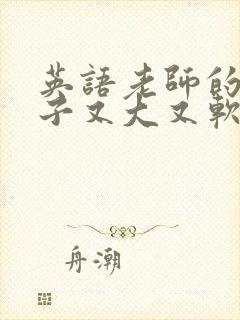 英語老師的
子又大又軟
舟潮